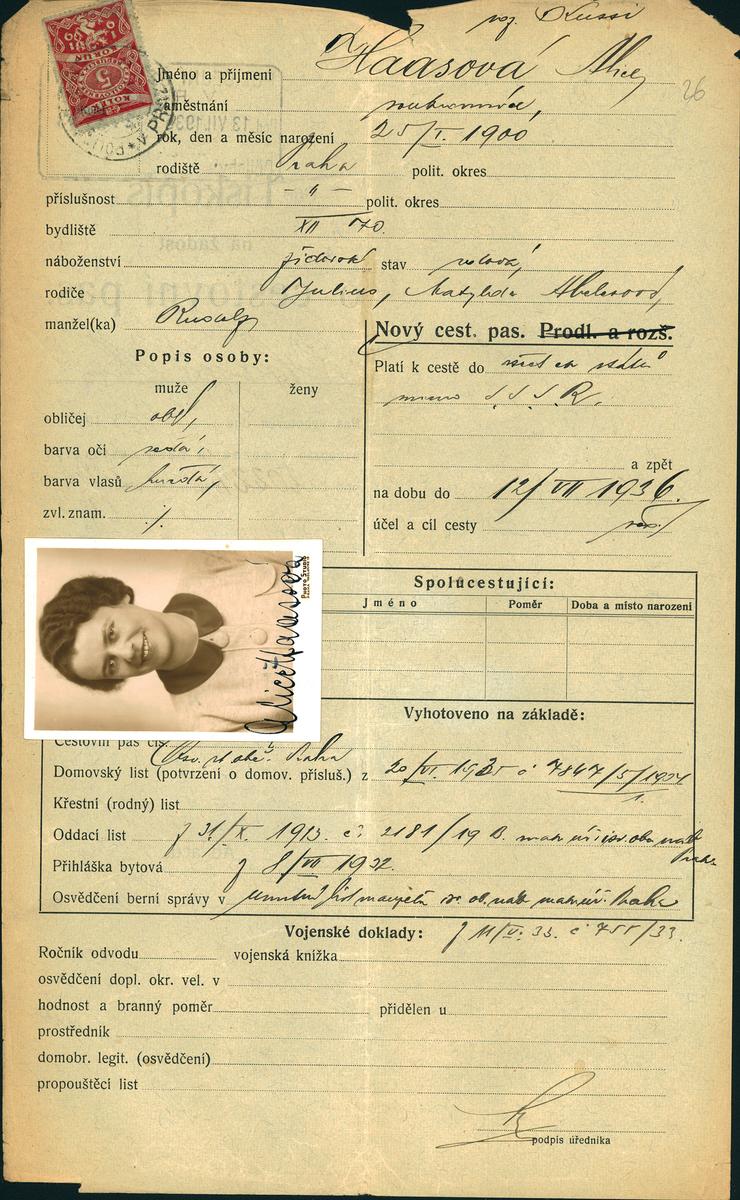 roz. Kussi
Jméno a příjmení Haasová Alice
26
zaměstnání soukromnice,
rok, den a měsíc narození 25/I. 1900
rodiště Praha polit. okres
příslušnost -"- polit. okres
bydliště XII 70.
náboženství židovské stav vdova,
rodiče Julius, Matylda Abelesová,
manžel(ka) Rudolf
Nový cest. pas. Prodl. a rozš.
Popis osoby:
Platí k cestě do všech států
mimo S.S.S.R.
muže ženy
obličej obl,
barva očí šedá,
barva vlasů hnědá,
zvl. znam. ./.
a zpět
na dobu do 12/VII 1936.
účel a cíl cesty
Spolucestující:
Jméno Poměr Doba a místo narození
Alice Haasova
PHOTO STUDIO
Vyhotoveno na základě:
Cestovní pas čís.
Praha
Domovský list (potvrzení o domov. přísluš.) z 20/VI. 1935 č 7847/5/1924
1.
Křestní (rodný) list
Oddací list z 31/X. 1913 č. 2181/19 B. mat. úř. isr. ob. náb. Praha
Přihláška bytová z 8/VII 1932.
Osvědčení berní správy v Úmrtní list manžela isr. ob. náb. mat. úř. Praha
z 11/V. 33. č 755/33.
Vojenské doklady:
Ročník odvodu vojenská knížka
osvědčení dopl. okr. vel. v
hodnost a branný poměr přidělen u
prostředník
domobr. legit. (osvědčení)
propouštěcí list
podpis úředníka